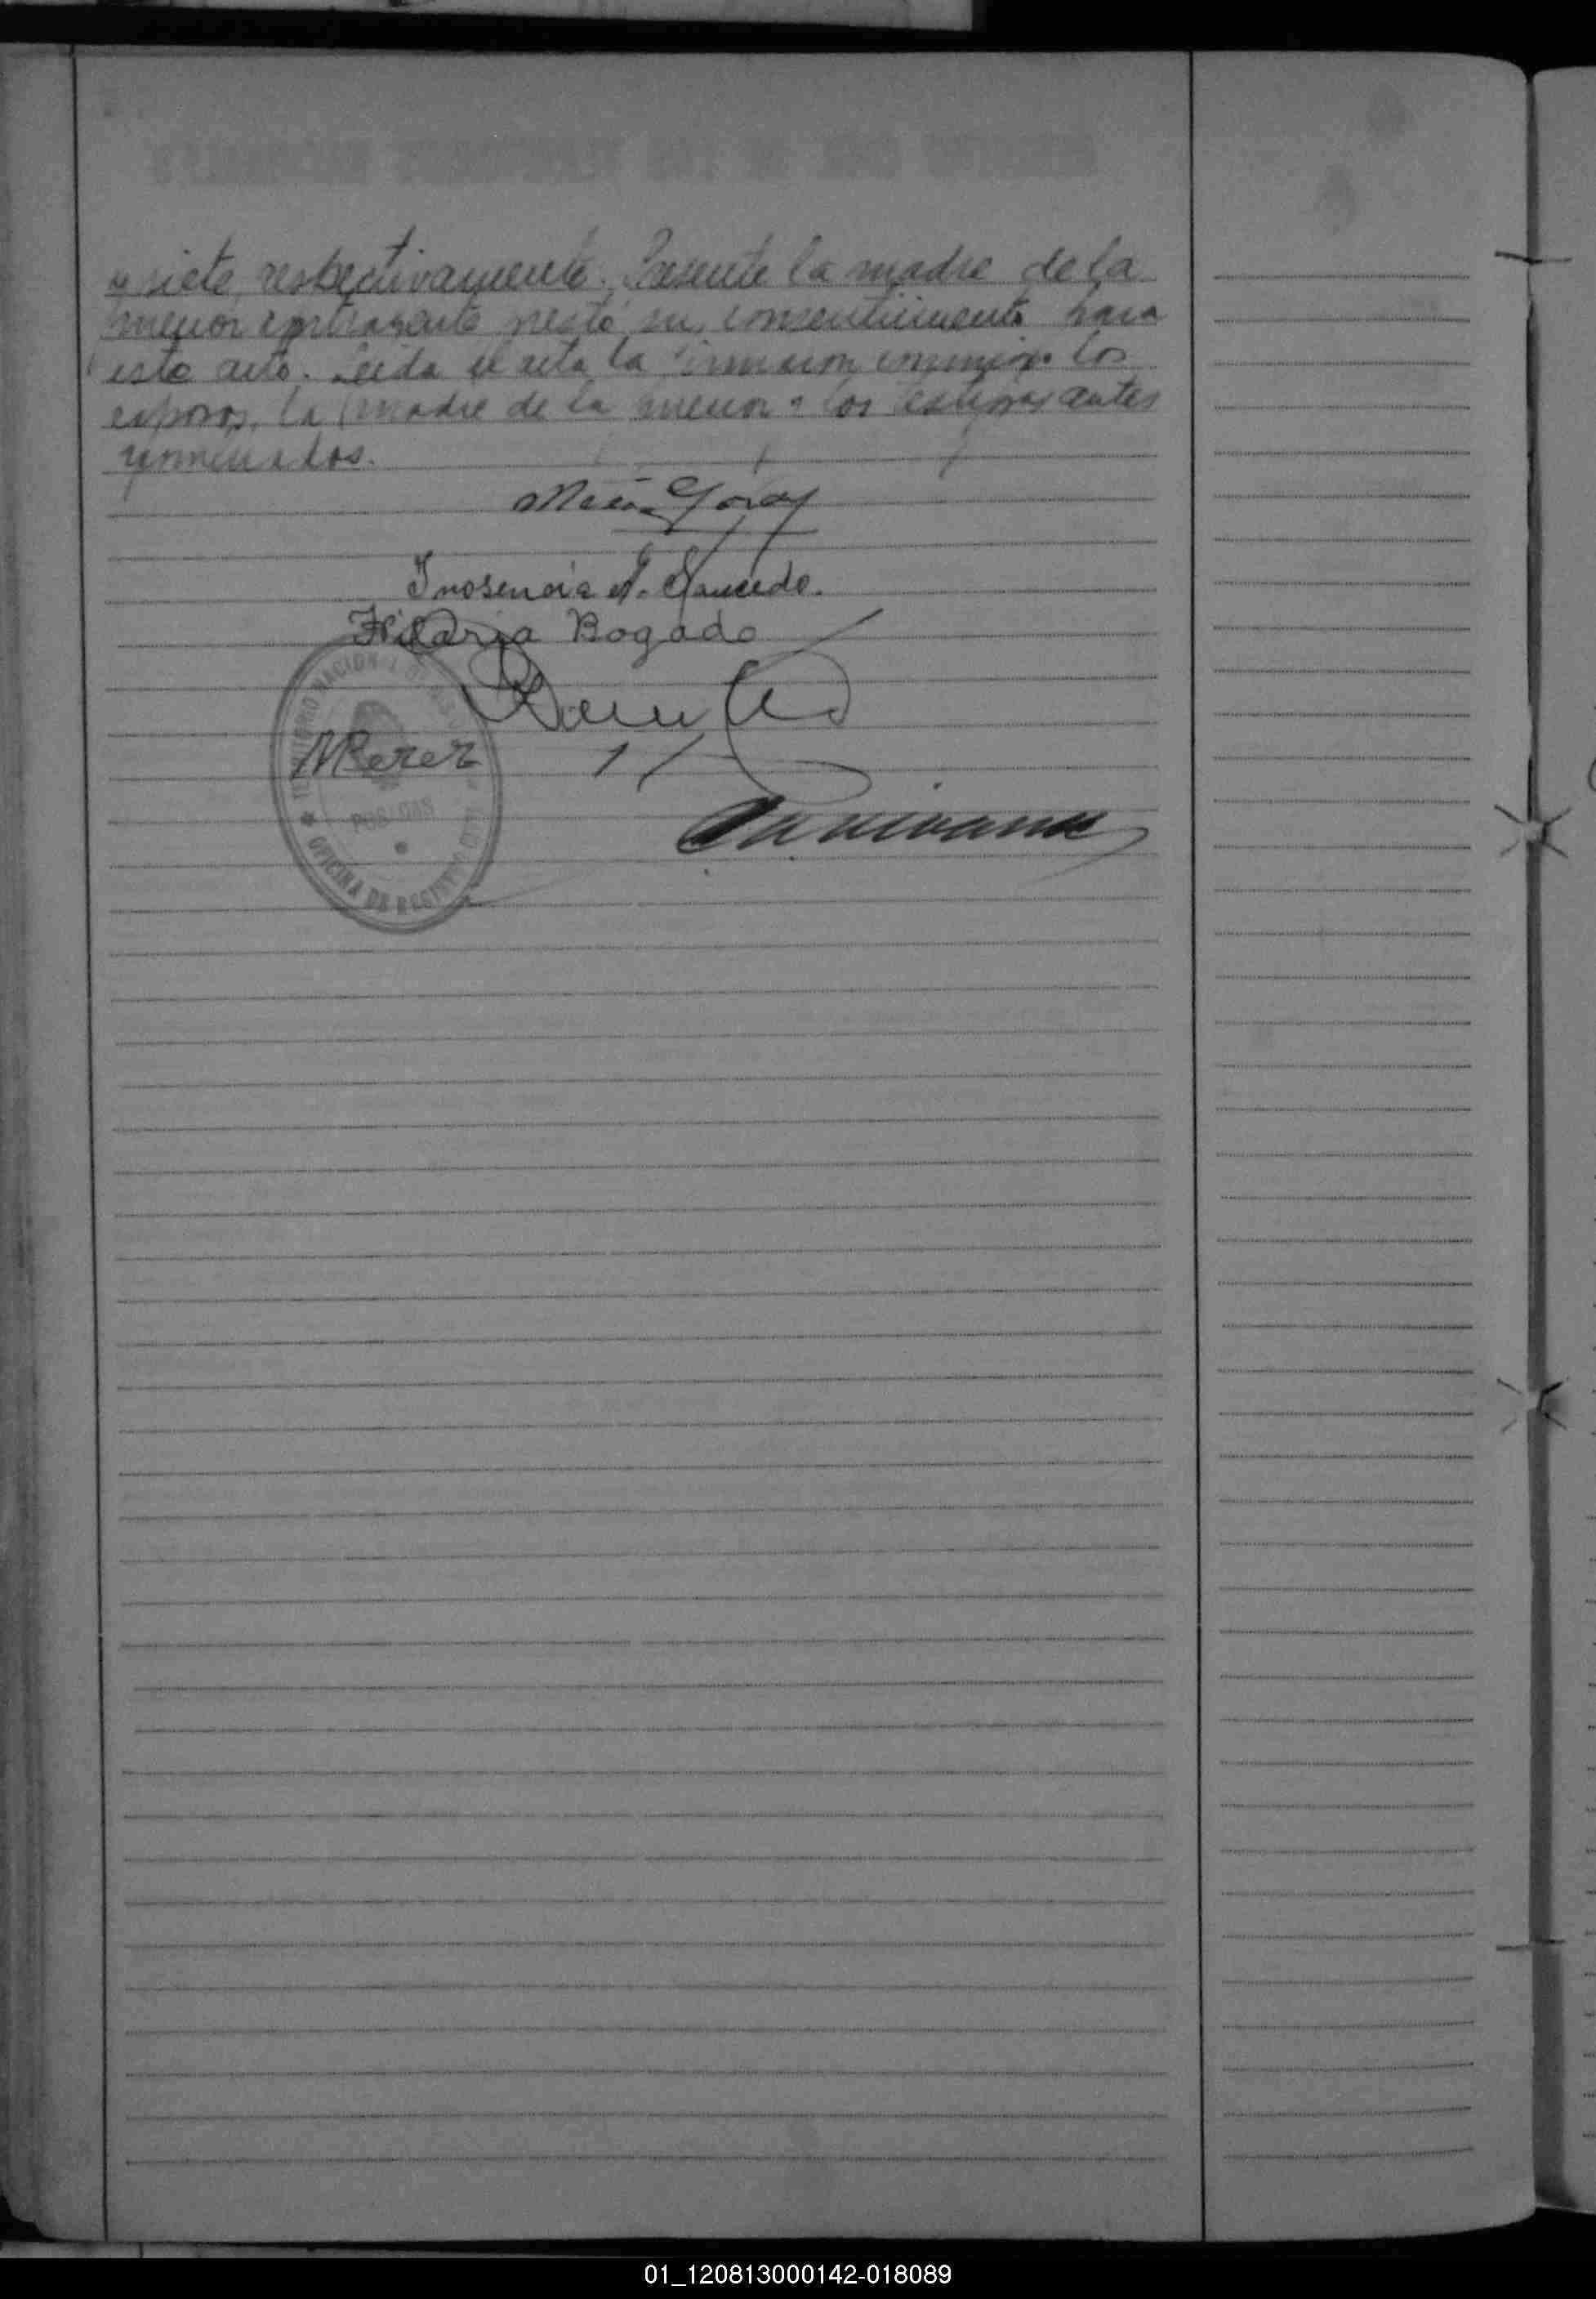 y siete respectivamente. Presente la madre de la
menor contrayente prestó su consentimiento para
este acto. Leida el acta la firmaron conmigo los
esposos, la madre de la menor y los testigos antes
nominados.
Inosencia A. Saucedo.
Hilaria Bogado
MPerez
TERRITORIO NACIONAL DE MISIONES
POSADAS
OFICINA DE REGISTRO CIVIL
01_120813000142-018089